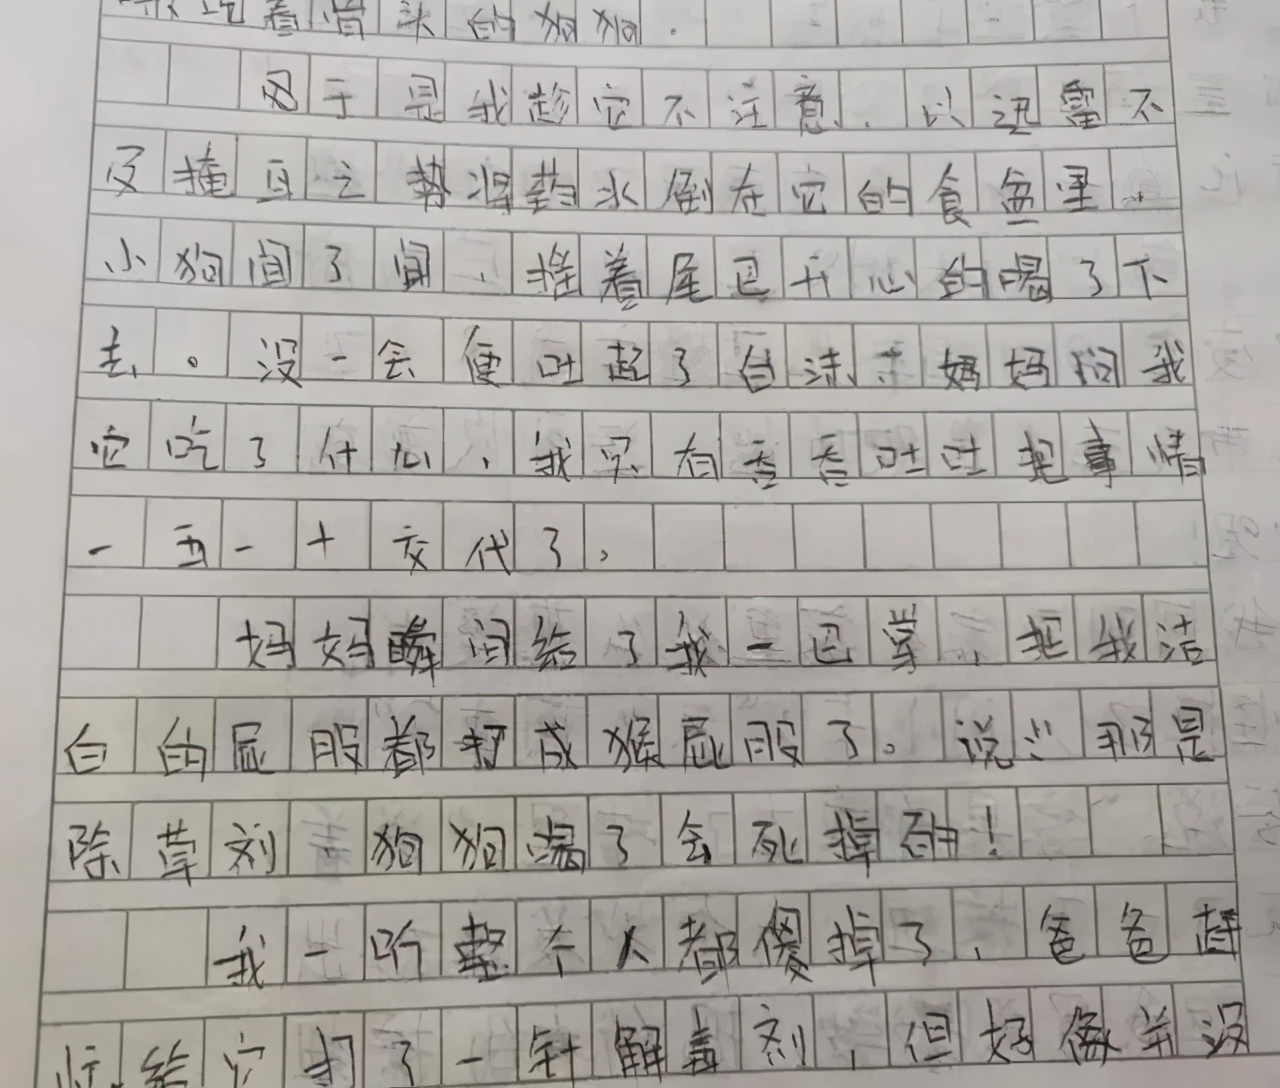 吃着骨头的狗狗.
于是我趁它不注意,以迅雷不
及掩耳之势将药水倒在它的食盆里,
小狗闻了闻,摇着尾巴开心的喝了下
去。没一会便吐起了白沫,妈妈问我
它吃了什么,我只有吞吞吐吐把事情
一五一十交代了。
妈妈瞬间给了我一巴掌,把我洁
白的屁股都打成猴屁股了。说:那是
除草剂 狗狗喝了会死掉的!
我一听整个人都傻掉了,爸爸赶
忙给它打了一针解毒剂,但好像并没